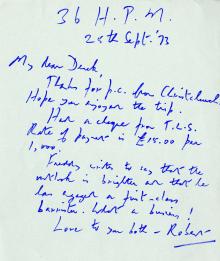 36 H.P.M.
24th Sept. '73
My dear Derek,
Thanks for p.c. from Christchurch.
Hope you enjoyed the trip.
Had a cheque from T.L.S.
Rate of payment is £15.00 per
1,000.
Freddy writes to say that the
outlook is brighter and that he
has engaged a first-class
barrister. What a business!
Love to you both - Robert